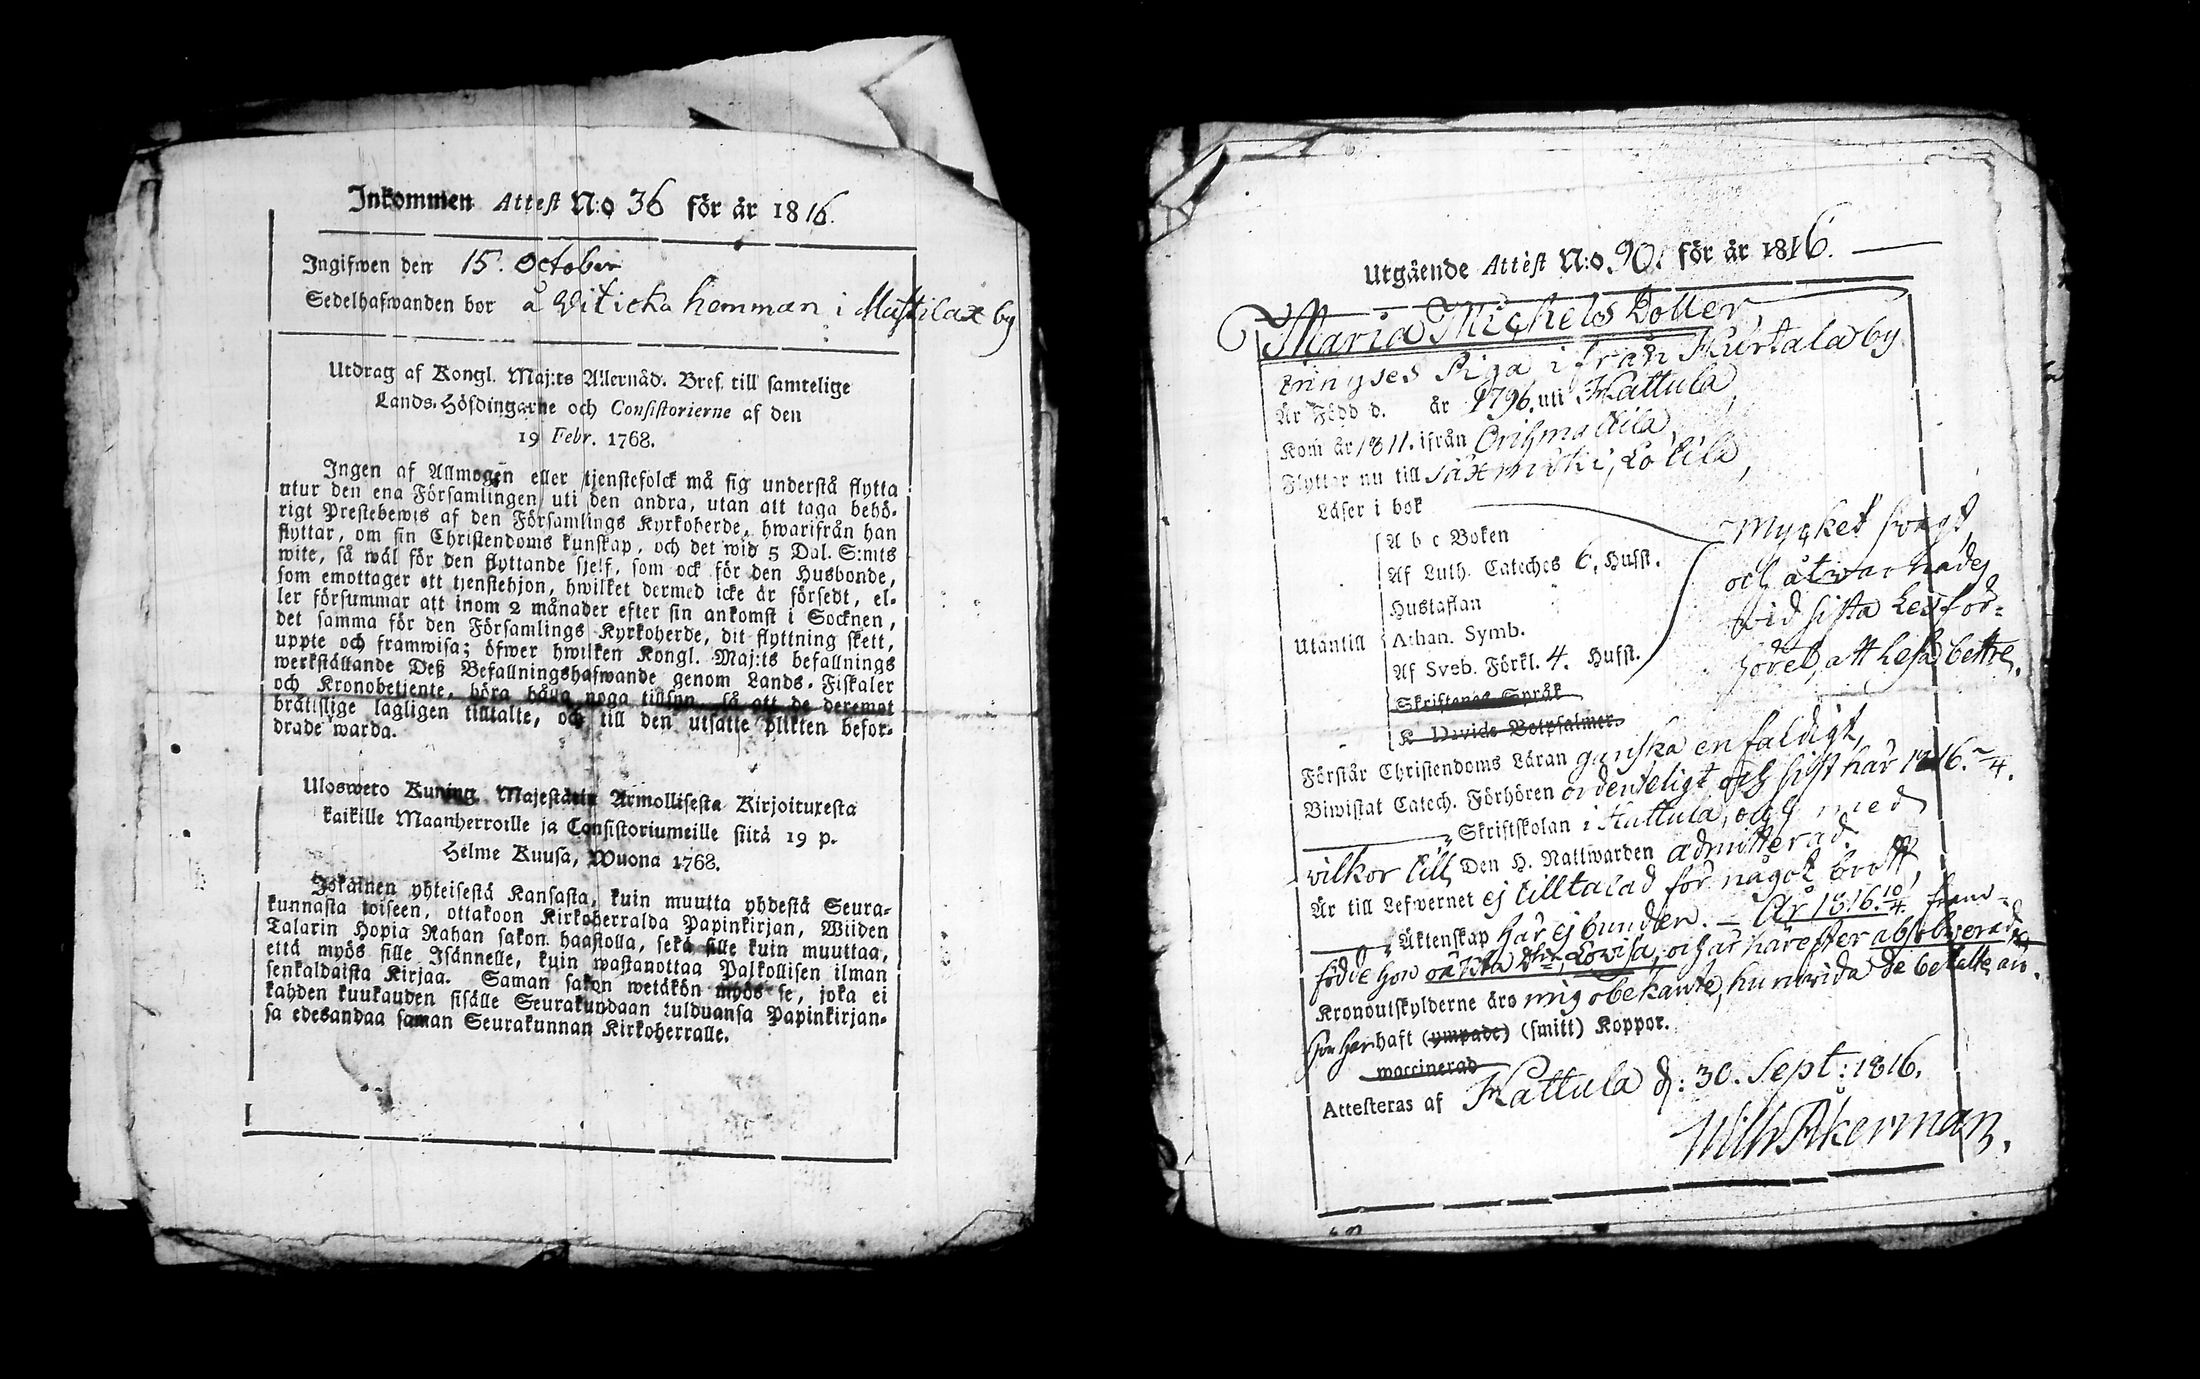 Inkommen Attest N:o 36 för år 1816.
Ingifwen den 15. October
Sedelhafwanden bor å Witicka hemman i Mustilax by
Utdrag af Kongl. Maj:ts Allernåd. Bref till samtelige
Lands-Höfdingarne och Consistorierne af den
19 Febr. 1768.
Ingen af Allmogen eller tjenstefolck må sig understå flytta
utur den ena Församlingen uti den andra, utan att taga behö-
rigt Prestebewis af den Församlings Kyrkoherde, hwarifrån han
flyttar, om sin Christendoms kunskap, och det wid 5 Dal. S:mts
wite, så wäl för den flyttande sjelf, som ock för den Husbonde,
som emottager ett tjenstehjon, hwilket dermed icke är försedt, el-
ler försummar att inom 2 månader efter sin ankomst i Socknen,
det samma för den Församlings Kyrkoherde, dit flyttning skett,
uppte och framwisa; öfwer hwilken Kongl. Maj:ts befallnings
werkställande Deß Befallningshafwande genom Lands-Fiskaler
och Kronobetjente, böra hålla noga tillsyn, så att de deremot
bråtislige lagligen tilltalte, och till den utsatte plikten befor-
drade warda.
Ulosweto Kuning. Majestätin Armollisesta Kirjoituxesta
kaikille Maanherroille ja Consistoriumeille siitä 19 p.
Helme Kuusa, Wuona 1768.
Jokainen yhteisestä Kansasta, kuin muutta yhdestä Seura-
kunnasta toiseen, ottakoon Kirkoherralda Papinkirjan, Wiiden
Talarin Hopia Rahan sakon haastolla, sekä sille kuin muuttaa,
että myös sille Isännelle, kuin wastanottaa Palkollisen ilman
senkaldaista Kirjaa. Saman sakon wetäkön myös se, joka ei
kahden kuukauden sisälle Seurakundaan tulduansa Papinkirjan-
sa edesandaa saman Seurakunnan Kirkoherralle.
Utgående Attest N:o 90. för år 1816.
Maria Michels Dotter,
Piga ifrån Kurtala by
Är Född d. år 1796. uti Hattula
Kom år 1811. ifrån Orihmattila
Flyttar nu till Säxmäki, Lotila,
Läser i bok
Mycket swagt,
A b c Boken
och åtwarnades
Af Luth. Cateches 6. Hufst.
wid sista Läsför-
Hustaflan
höret, att läsa bettre.
Utantill
Athan. Symb.
Af Sveb. Förkl. 4. Hufst.
Skriftenes Språk
K Davids Botpsalmer.
Förstår Christendoms Läran ganska enfaldigt,
Biwistat Catech. Förhören ordenteligt och sist här 1816.
Skriftskolan i Hattula, och med
vilkor till Den H. Nattwarden admitterad.
Är till Lefwernet ej tilltalad för något brott,
Äktenskap har ej bunden. — År 1816. 10/4 fram-
födde hon oäkta Lowisa, och är härefter absolwerad,
Kronoutskylderne äro mig obekante, huruvida de betalte äro.
Hon har haft (ympade) (smitt) Koppor.
waccinerad
Attesteras af Hattula d: 30. Sept: 1816.
Wilh Åkerman.